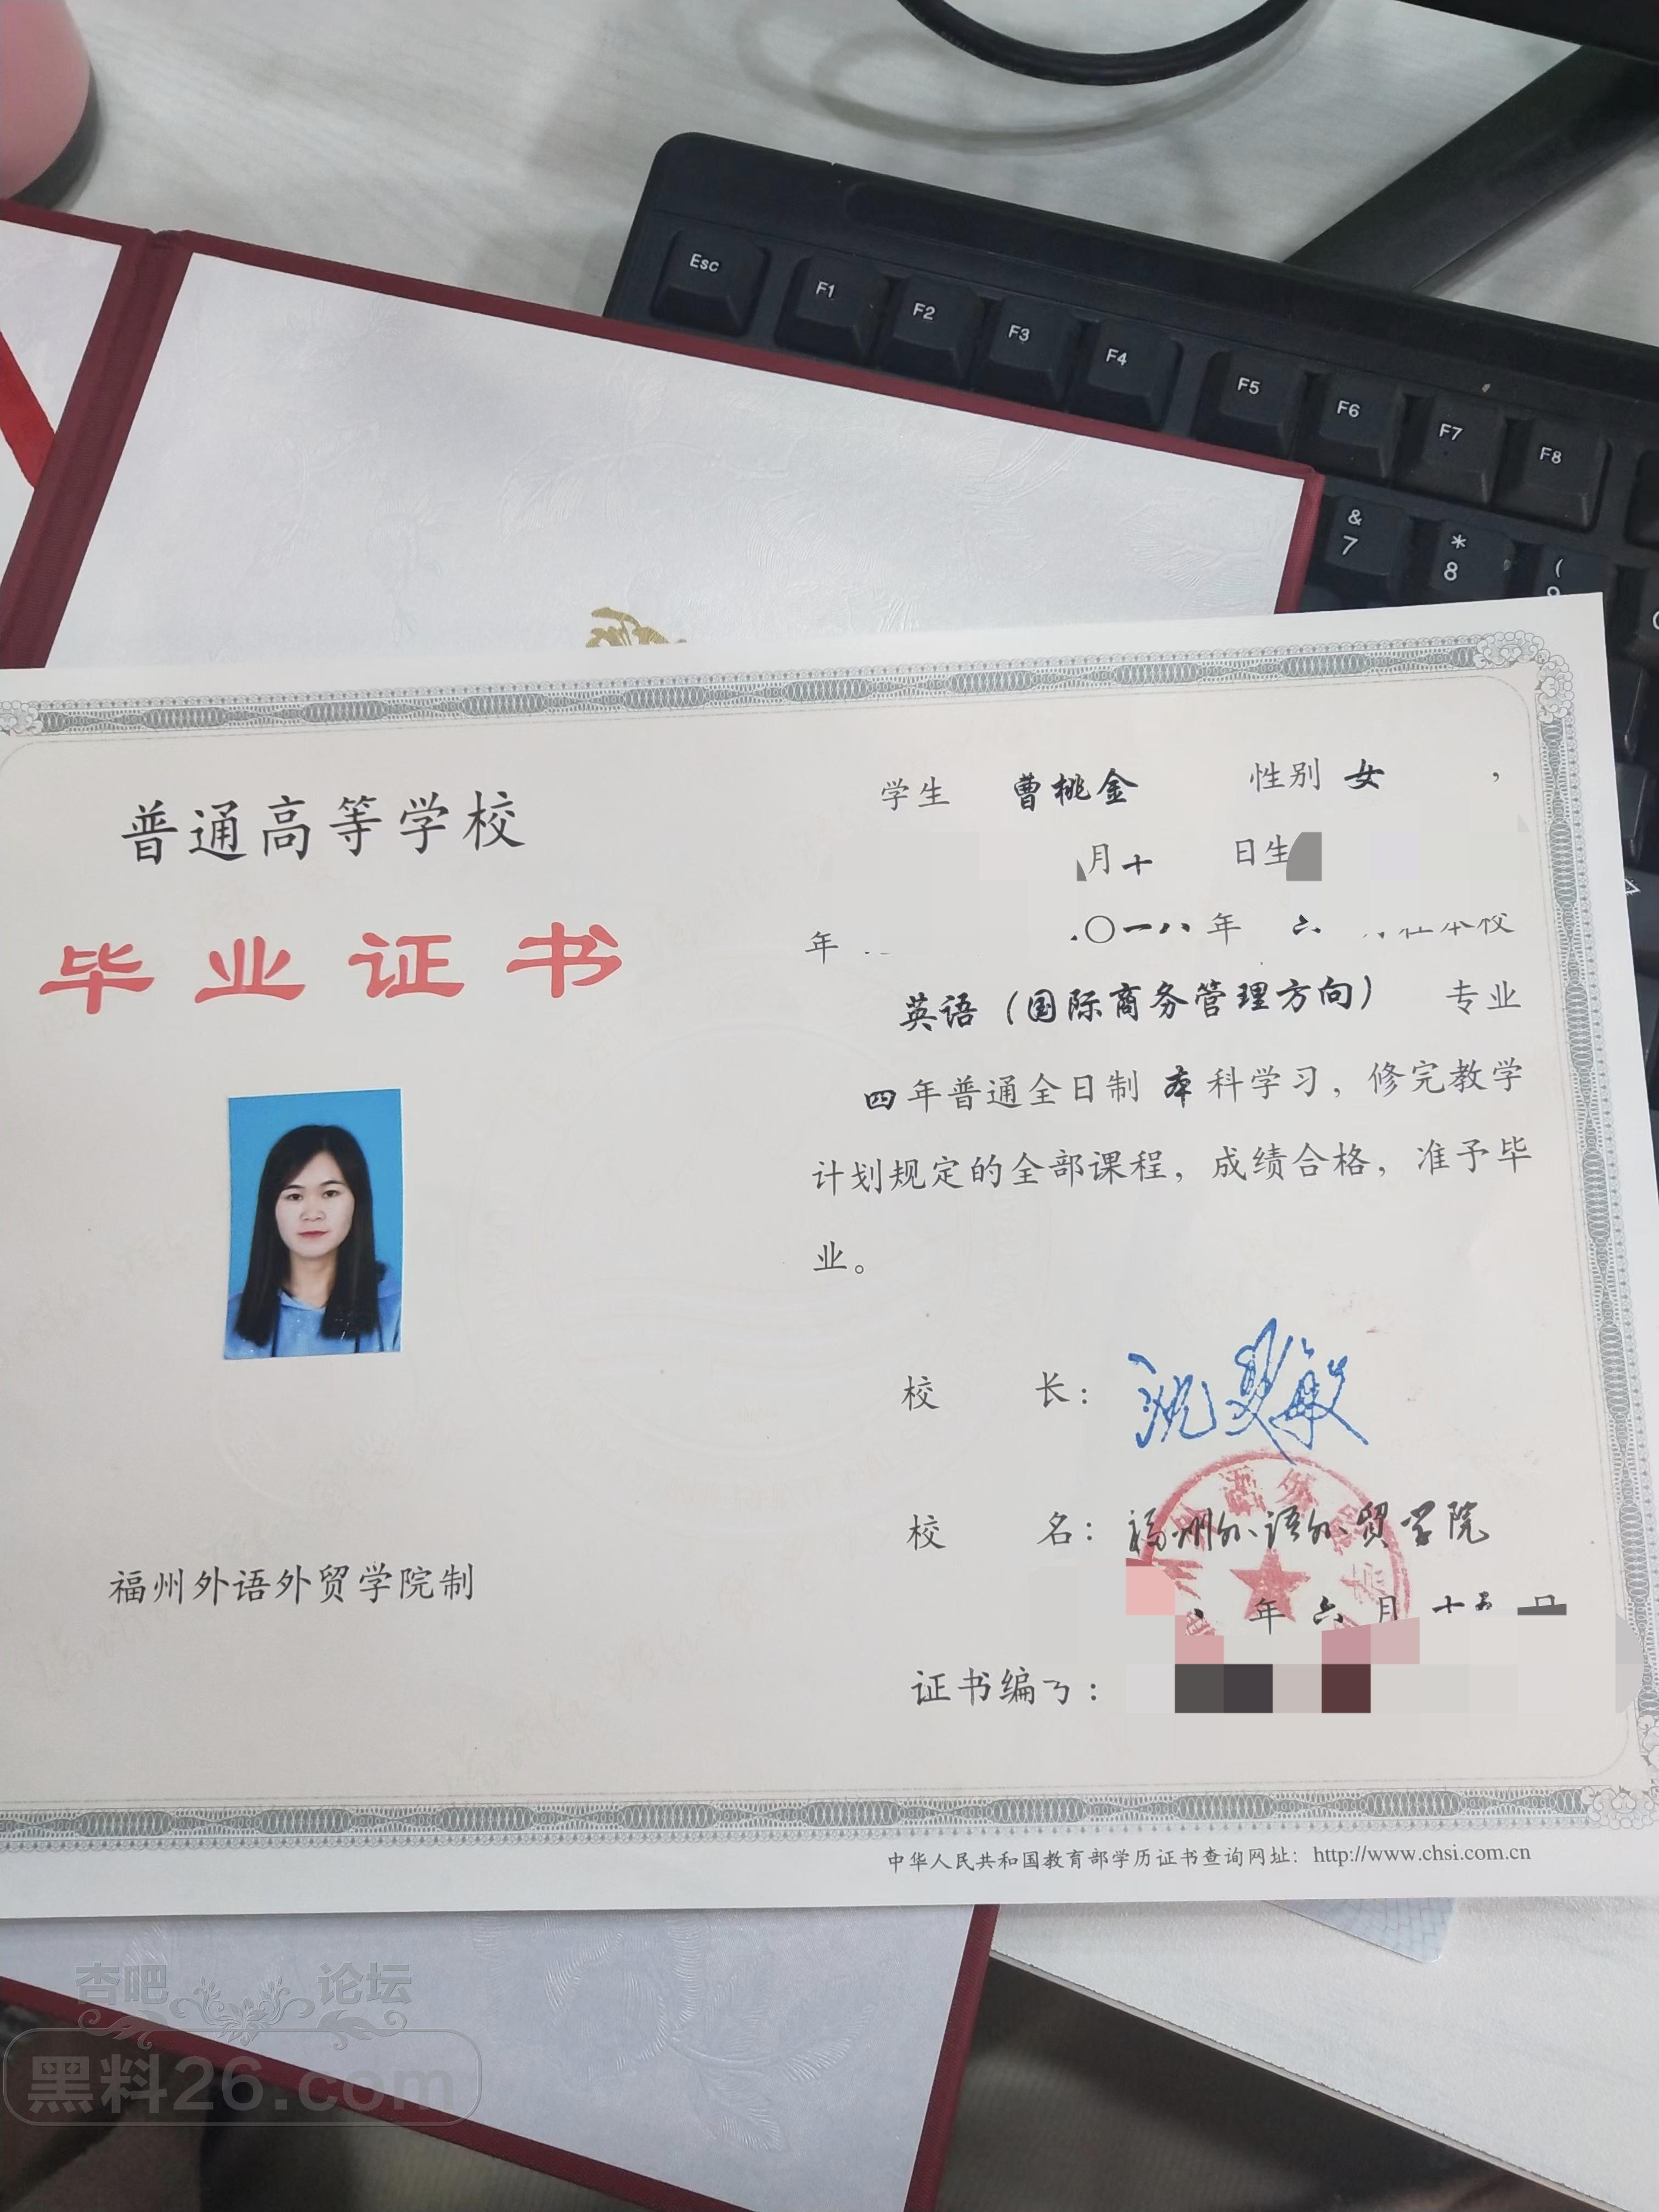 Esc
F1
F2
F3
F4
F5
F6
F7
F8
&
7
*
8
(
普通高等学校
毕业证书
福州外语外贸学院制
学生 曹桃金 性别 女 ,
月十 日生
年 〇一八年 六
英语（国际商务管理方向） 专业
四年普通全日制 本 科学习，修完教学
计划规定的全部课程，成绩合格，准予毕
业。
校 长：
校 名：福州外语外贸学院
年 六 月 十五 日
证书编 ：
中华人民共和国教育部学历证书查询网址：http://www.chsi.com.cn
杏吧 论坛
黑料26.com